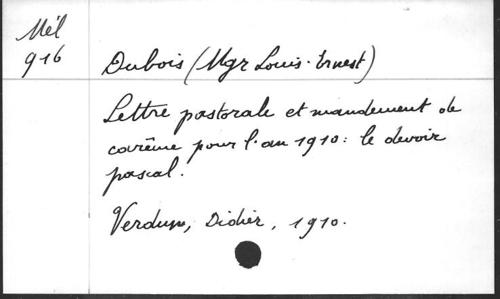 Mél
916
Dubois (Mgr Louis-Ernest)
Lettre pastorale et mandement de
carême pour l'an 1910 : le devoir
pascal.
Verdun, Didier, 1910.